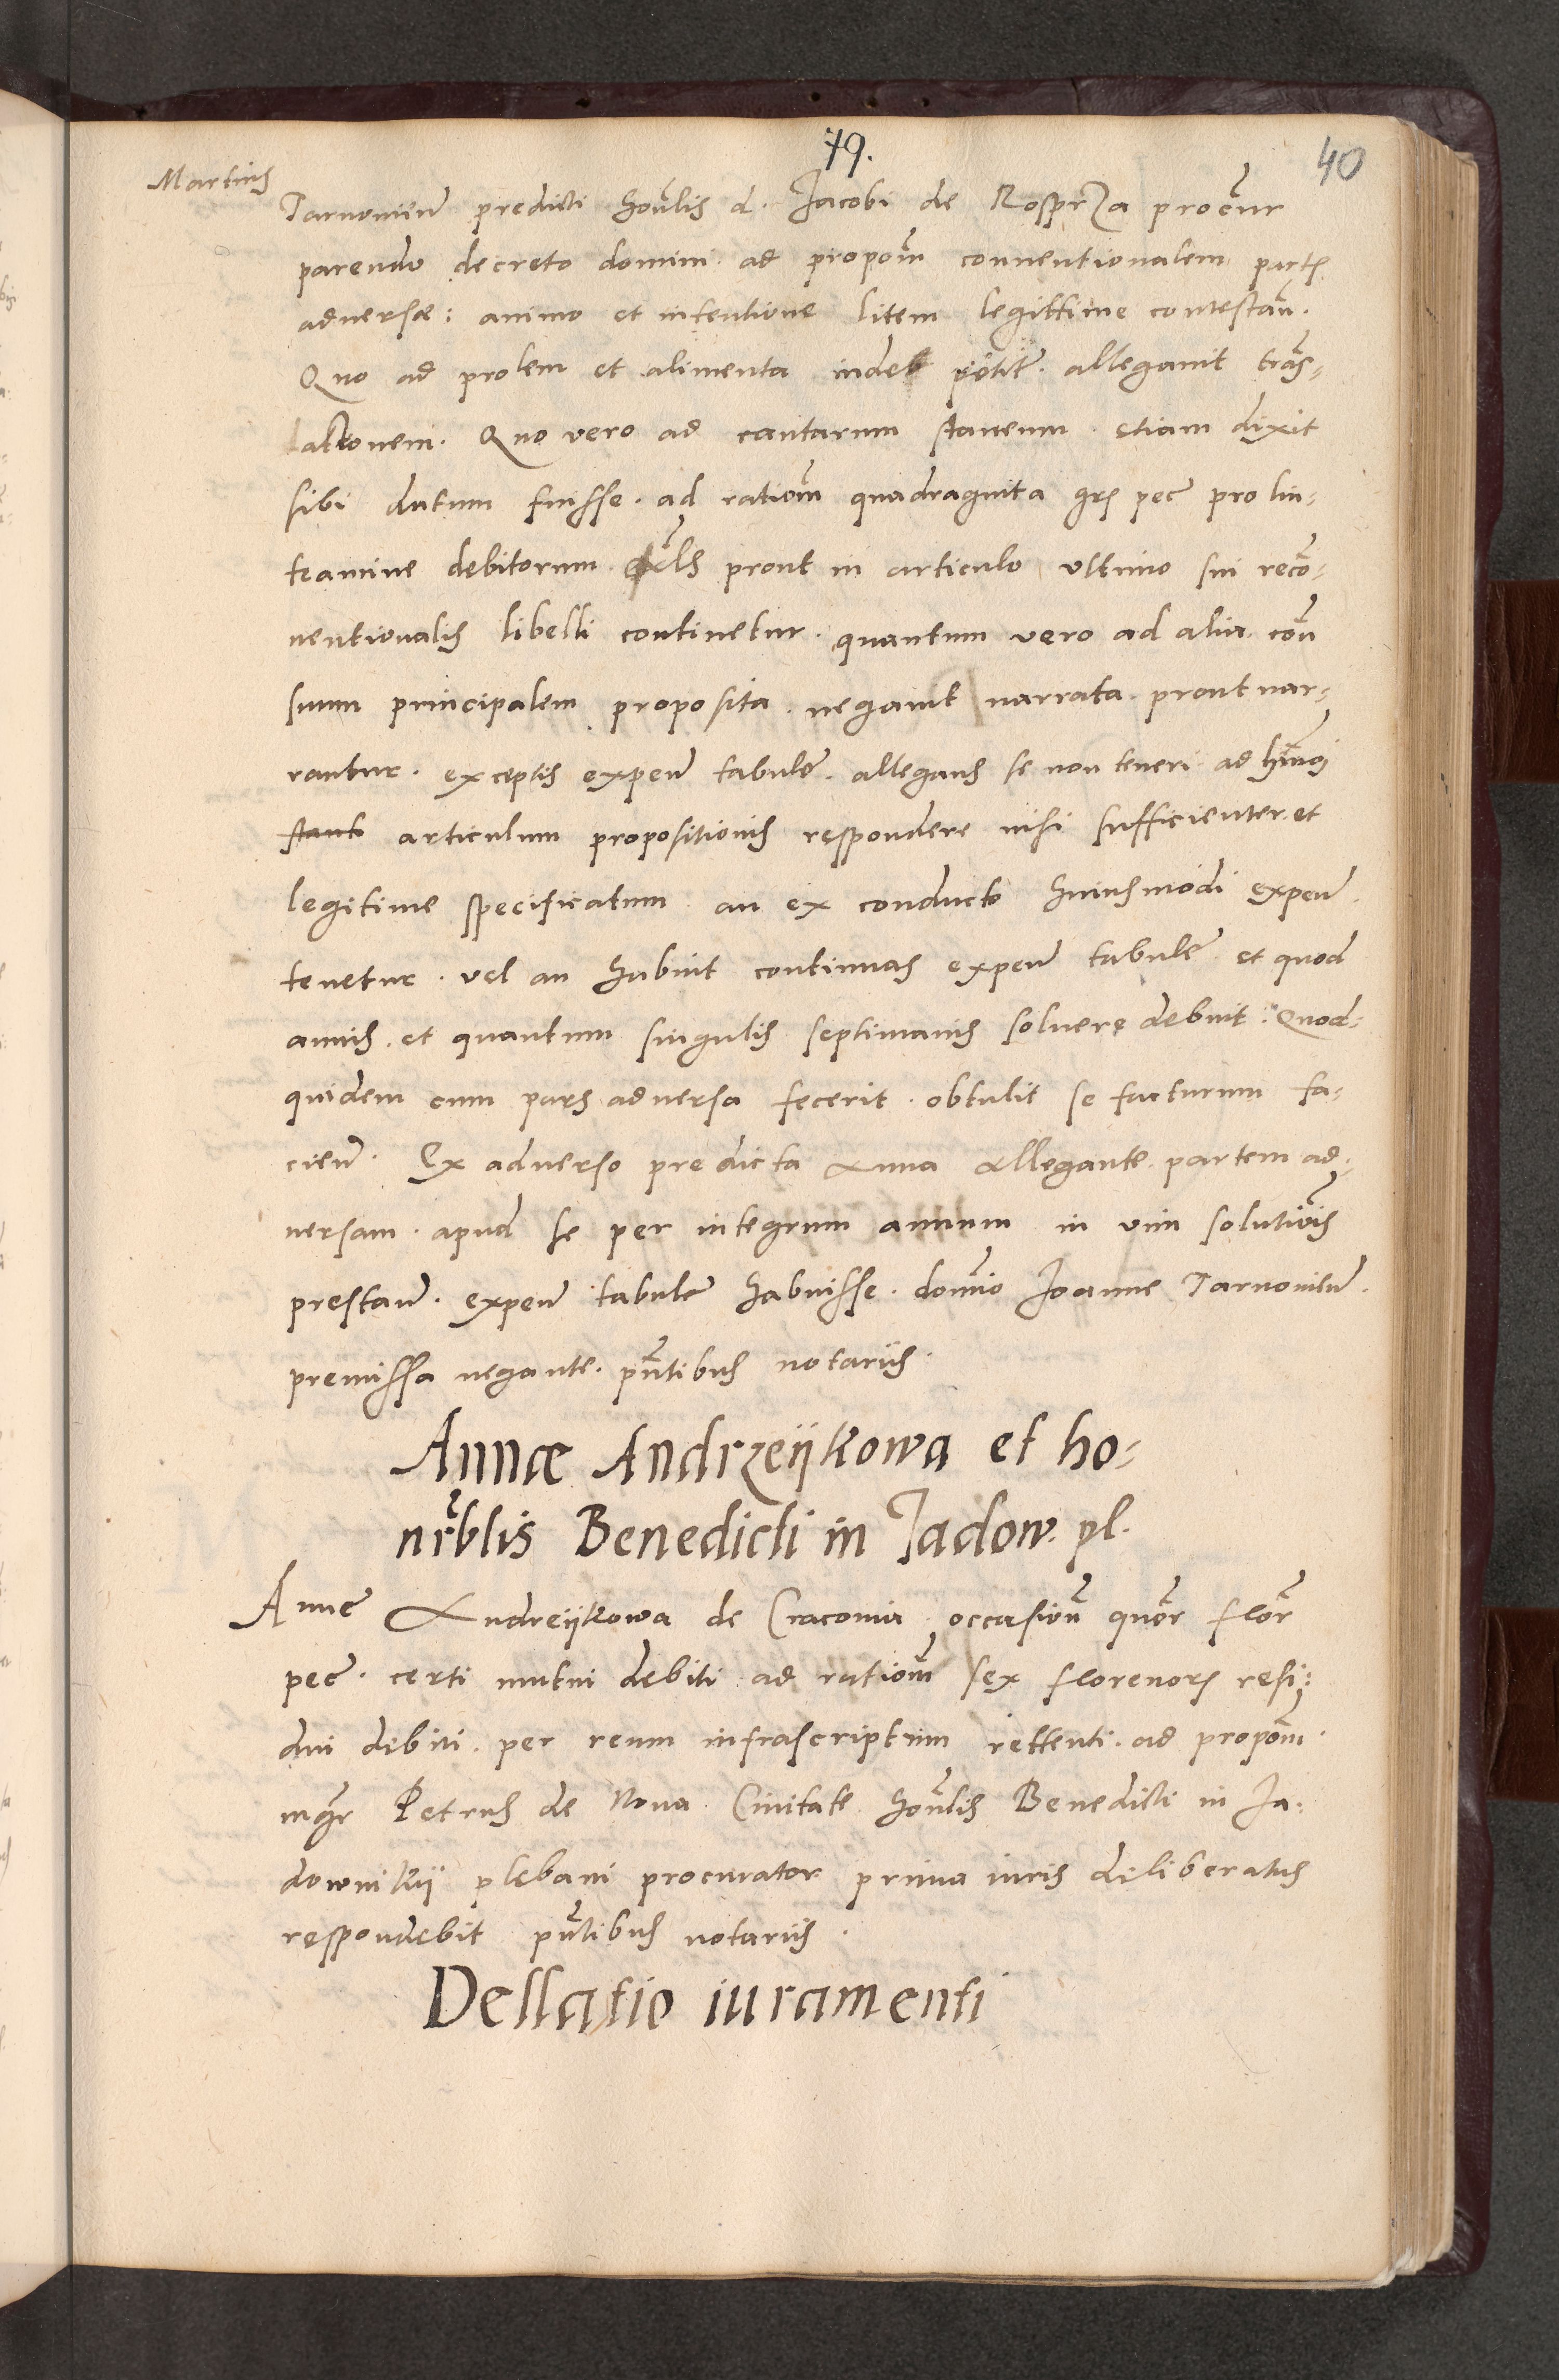 79.
40
Martius
Tarnovien predicti hon̄lis d. Jacobi de Rosprza procur
parendo decreto domini ad propom̄ conventionalem partis
adversæ: animo et intentione litem legittime contestan̄.
Quo ad prolem et alimenta inde petit. allegavit trās-
lationem. Quo vero ad cantarum staneum etiam dixit
sibi datum fuisse. ad ratiom̄ quadraginta grs pec̄ pro lin-
teamine debitorum prout in articulo ultimo sui reco-
nentionalis libelli continetur. quantum vero ad alia con̄
suum principalem proposita. negavit narrata prout nar-
rantur. exceptis expen̄ tabulē. allegans se non teneri ad hmōi
articulum propositionis respondere nisi sufficienter et
legitime specificatum an ex conducto huiusmodi expen̄
tenetur. vel an habuit continuas expen̄ tabulē et quod
annis. et quantum singulis septimanis solvere debuit. Quod-
quidem cum pars adversa fecerit. obtulit se facturum fa-
cien̄. Ex adverso predicta Anna allegante partem ad-
versam. apud se per integrum annum in vim solutiōis
prestan̄. expen̄ tabulē habuisse. domīo Joanne Tarnovien̄.
premissa negante. pn̄tibus notariis.
Annæ Andrzeijkowa et ho-
nr̄blis Benedicti in Jadow. pl.
Anne Andreijkowa de Cracovia occasion̄ quor flor̄
pec̄. certi mutui debiti ad ratiom̄ sex florenors resi-
dui debiti. per reum infrascriptum rettenti. ad propom̄.
mgr̄ Petrus de Nova Civitate hon̄lis Benedicti in Ja-
downikij plebani procurator prima iuris deliberatus
respondebit pn̄tibus notariis.
Dellatio iuramenti